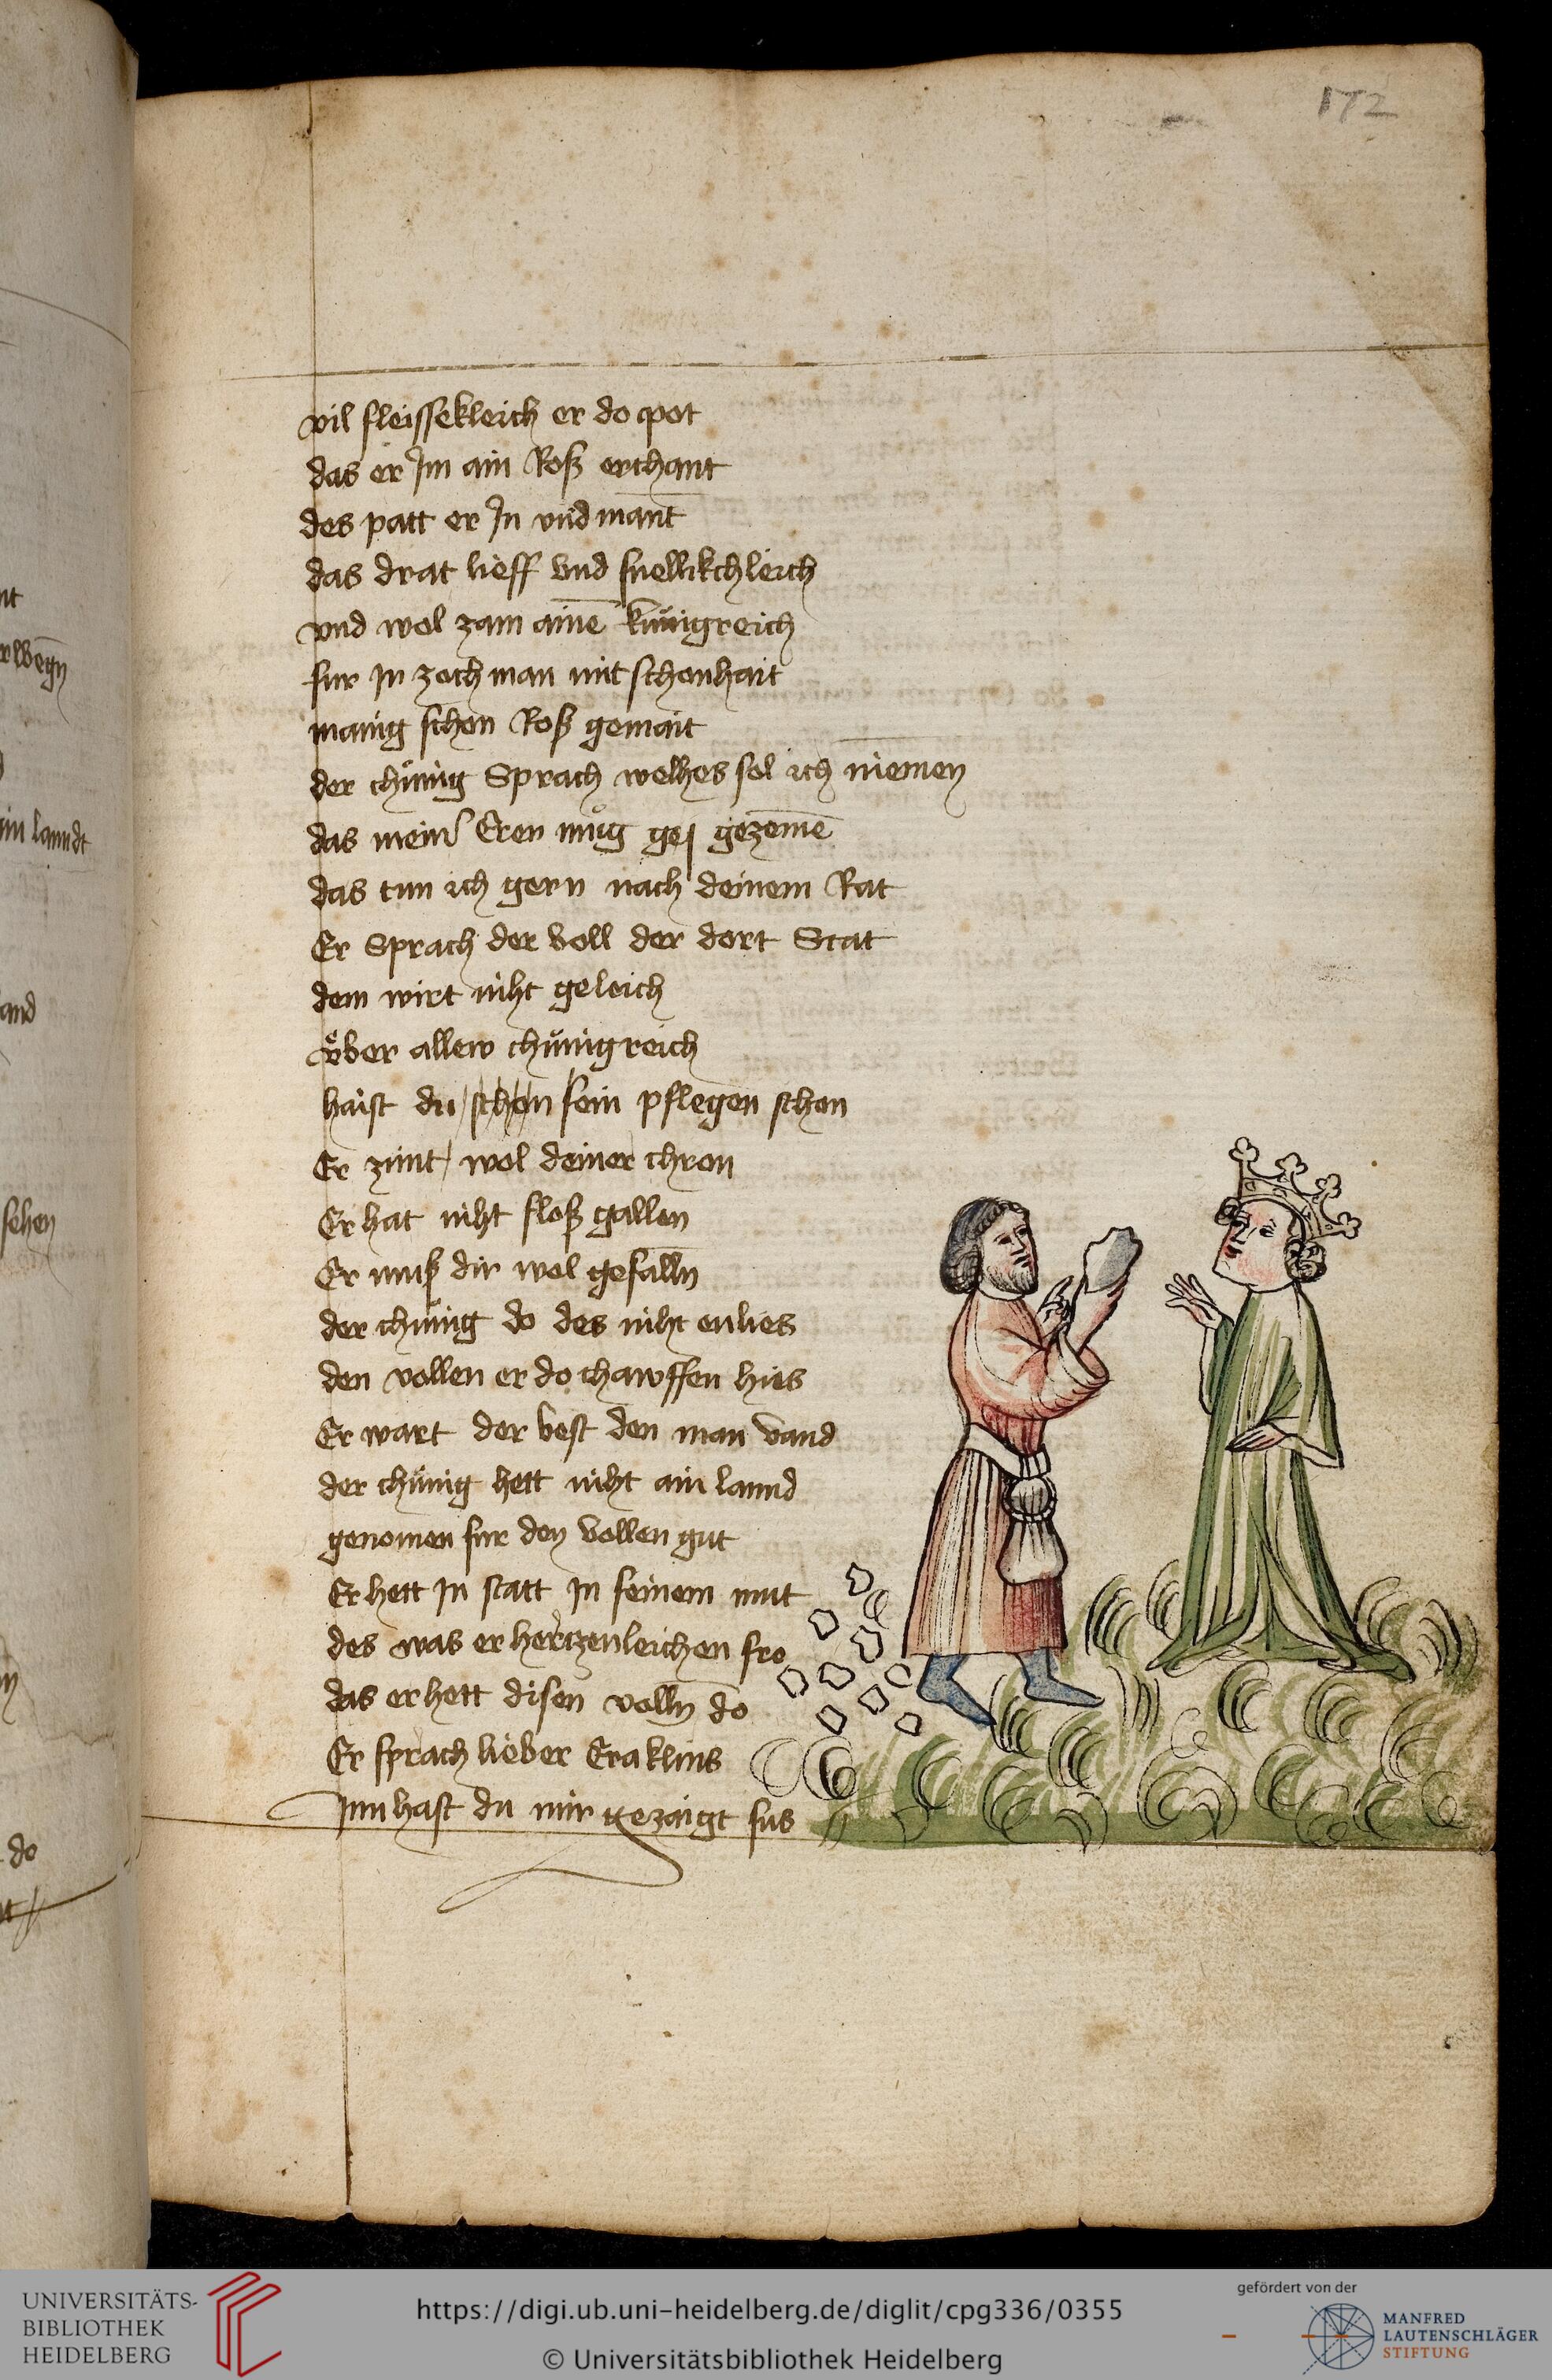 172
vil fleissekleich er do pot
das er Jm ain Roß erchant
des patt er Jn vnd mant
das drat lieff vnd snellikchleich
vnd wol zam ainē kunigreich
fur jn zoch man mit schonhait
manig schon Roß gemait
der chunig Sprach welhes sol ich niemen
das meiner Eren mug gezemē
das tun ich gern nach deinem Rat
Er Sprach der voll der dort Stat
dem wirt niht geleich
vber allew chunigreich
haist du schon sein pflegen schon
Er zimt wol deiner chron
Er hat niht floß gallen
Er muß dir wol gefalln
der chunig do des niht enlies
den vollen er do chawffen hies
Er wart der best den man vand
der chunig hett niht ain lannd
genomen fur den vollen gut
Er hett jn statt jn seinem mut
des was er hertzenleichen fro
das er hett disen volln do
Er sprach lieber Eraklius
Nun hast du mir gezaigt sus
nt
in lanndt
and
sehen
do
UNIVERSITÄTS-
BIBLIOTHEK
HEIDELBERG
https://digi.ub.uni-heidelberg.de/diglit/cpg336/0355
© Universitätsbibliothek Heidelberg
gefördert von der
MANFRED
LAUTENSCHLÄGER
STIFTUNG